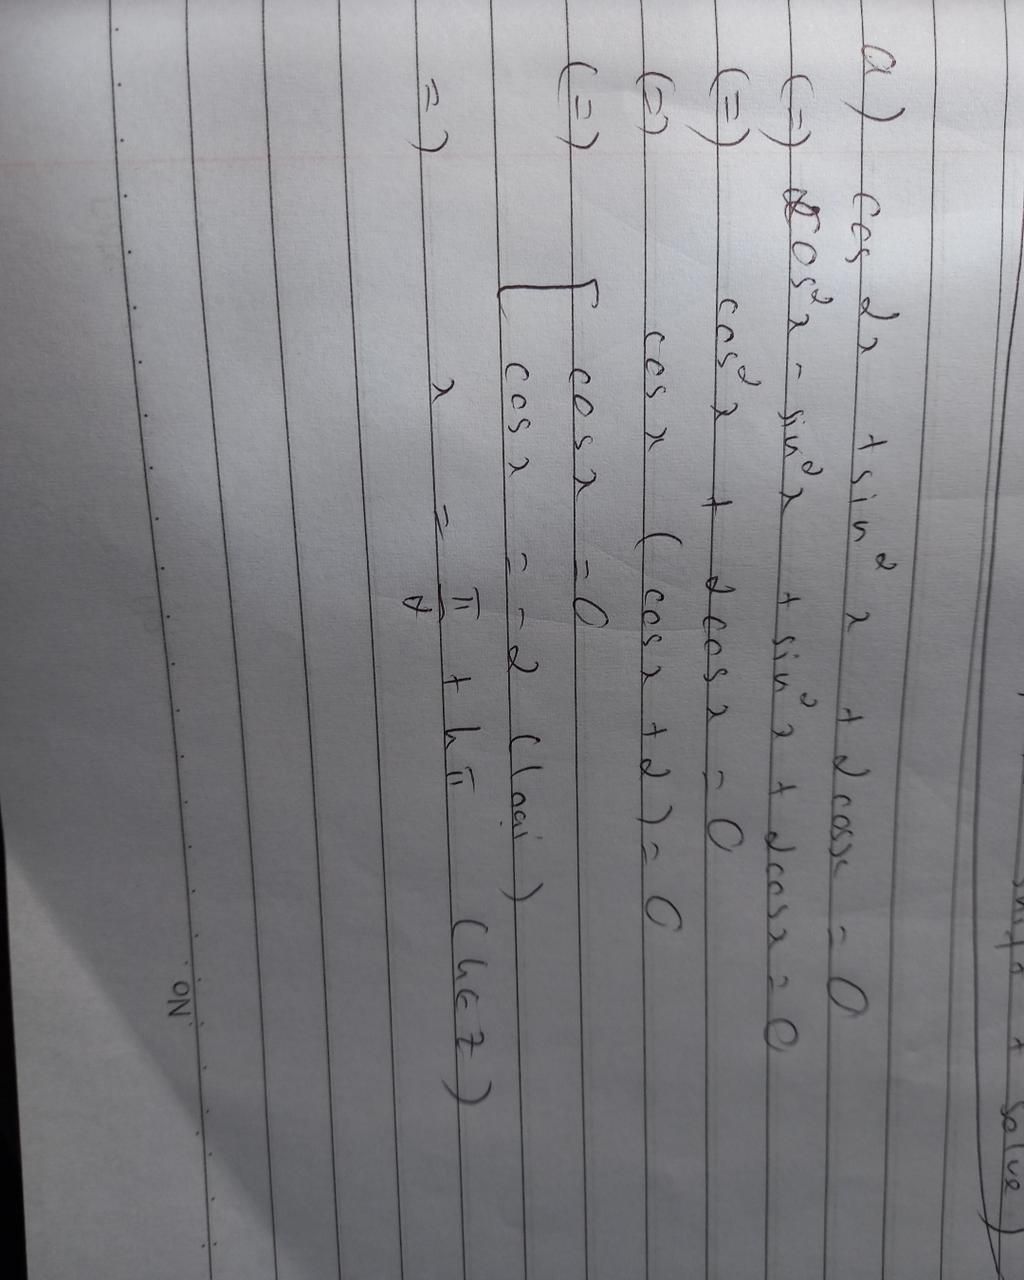 solve)
a) cos 2x + sin² x + 2cosx = 0
(=) cos²x - sin²x + sin²x + 2cosx = 0
(=) cos²x + 2cosx = 0
(=) cosx (cosx + 2) = 0
(=) [ cosx = 0
cosx = -2 (loại)
=) x = π/2 + kπ (k∈Z)
No.